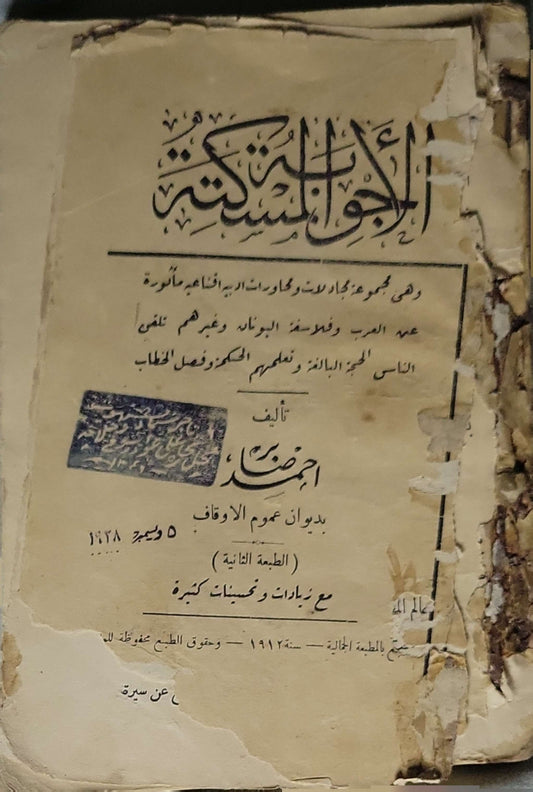 الأجوبة المسكتة
وهى مجموعة مجادلات ومحاورات ادبيه اقناعيه مأثورة
عن العرب وفلاسفة اليونان وغيرهم تلقى
الناس الحجة البالغة وتعلمهم الحكمة وفصل الخطاب
تأليف
احمد صابر
بديوان عموم الاوقاف
٥ ديسمبر ١٩٢٨
( الطبعة الثانية )
مع زيادات وتحسينات كثيرة
بالمطبعة الجمالية — سنة ١٩١٢ — وحقوق الطبع محفوظة
عن سيرة